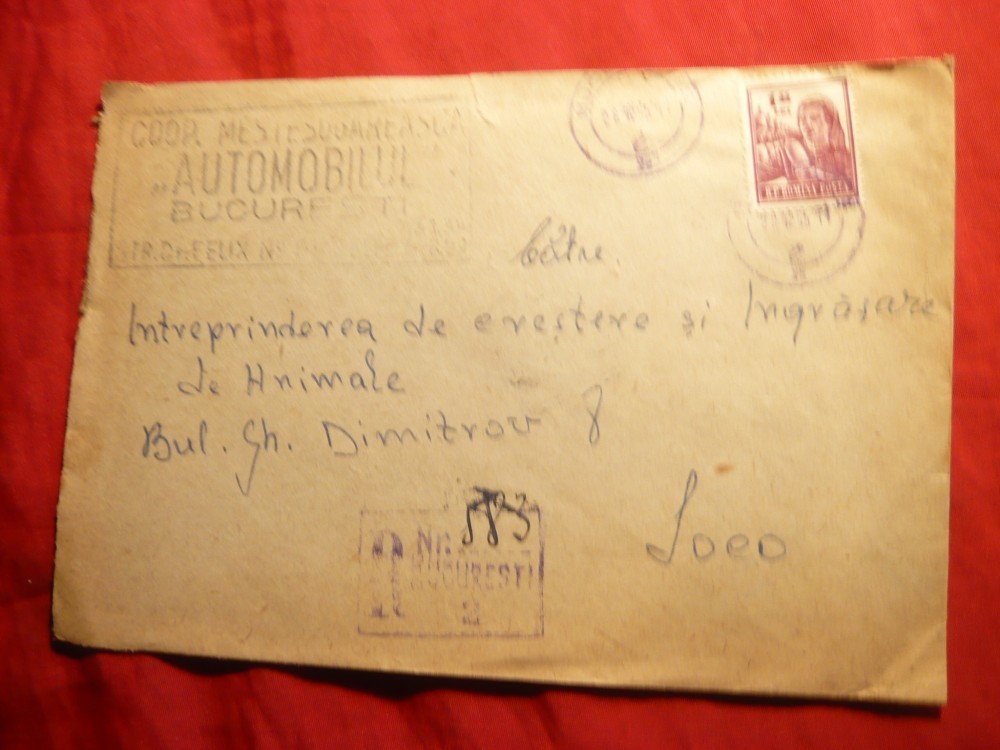 COOP. MESTESUGAREASCA
„AUTOMOBILUL”
BUCURESTI
STR. Dr. FELIX Nr
R.P. ROMINA POSTA
Către.
Intreprinderea de creștere și Ingrășare
de Animale
Bul. Gh. Dimitrov 8
Loco
R Nr. 583
BUCURESTI